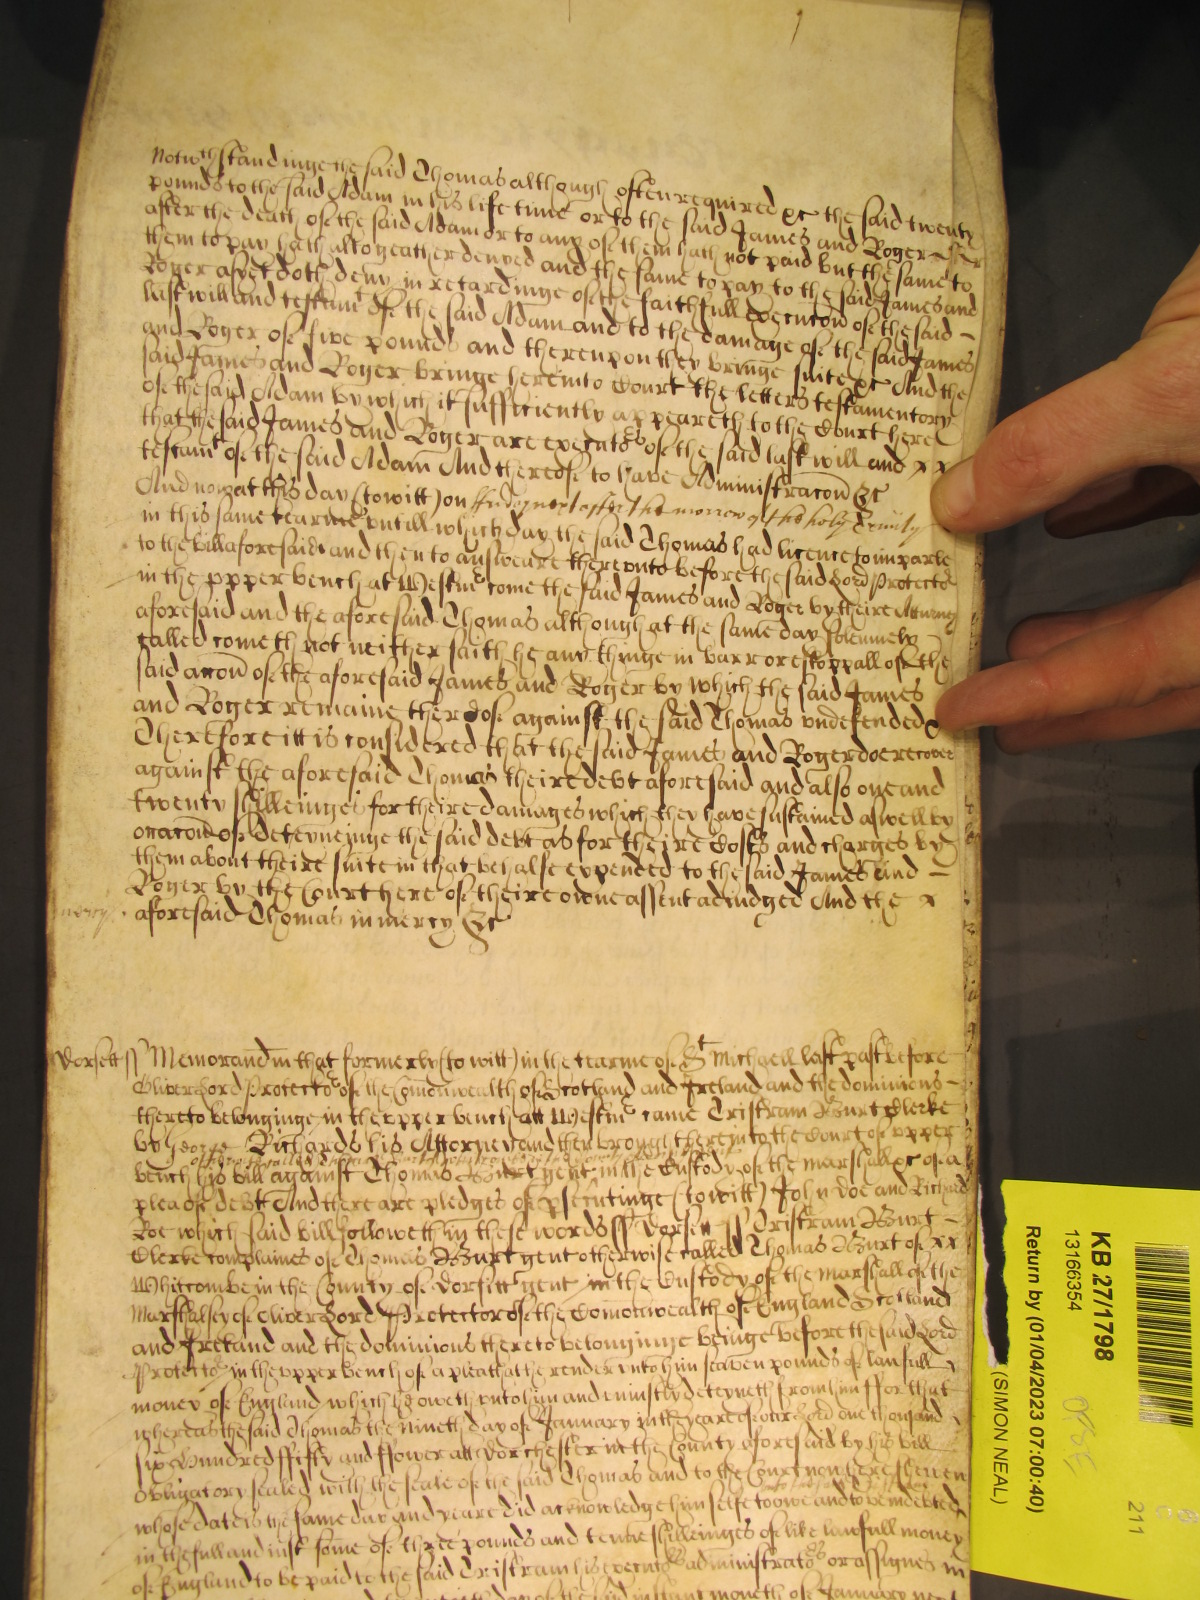 Notwthstandinge the said Thomas although often required &c the said twenty
pounds to the said Adam in his life time or to the said James and Roger
after the death of the said Adam or to any of them hath not paid but the same to
them to pay hath altogeather denyed and the same to pay to the said James and
Roger as yet doth deny in retardinge of the faithfull execucon of the said
last will and testamt of the said Adam and to the damage of the said James
and Roger of five pounds and thereupon they bringe suite &c And the
said James and Roger bringe here into Court the letters testamentory
of the said Adam by which it sufficiently appeareth to the Court here
that the said James and Roger are executors of the said last will and
testamt of the said Adam And thereof to have Administracon &c
And now at this day (to witt) on ffryday next after the morrow of the holy Trinity
in this same tearme untill which day the said Thomas had licence to imparle
to the bill aforesaid and then to answeare thereunto before the said Lord Protector
in the upper bench at Westmr come the said James and Roger by theire Attorney
aforesaid and the aforesaid Thomas although at the same day solemnely
called cometh not neither saith he any thinge in barr or estoppall of the
said accon of the aforesaid James and Roger by which the said James
and Roger remaine thereof against the said Thomas undefended &c
Therefore itt is considered that the said James and Roger doe recover
against the aforesaid Thomas theire debt aforesaid and also one and
twenty shilleinges for theire damages which they have sustained aswell by
occacon of deteyneinge the said debt as for theire Costs and charges by
them about theire suite in that behalfe expended to the said James and
Roger by the Court here of theire owne assent adiudged And the
mercy
aforesaid Thomas in mercy &c
Dorsett ss Memorandm that formerly (to witt) in the tearme of St Michaell last past before
Oliver Lord Protector of the Comonwealth of Scotland and Ireland and the dominions
thereto belonginge in the upper bench att Westmr came Tristram Burt Clerke
by George Richards his Attorney and then brought here into the Court of upper
bench his bill against Thomas Burt gent in the Custody of the Marshall &c of a
plea of debt And there are pledges of prosecutinge (to witt) John Doe and Richard
Roe which said bill followeth in these words ss Dorsett ss Tristram Burt
Clerke complaines of Thomas Burt gent otherwise called Thomas Burt of
Whitcombe in the County of Dorsett gent in the Custody of the Marshall of the
Marshalsey of Oliver Lord Protector of the Comonwealth of England Scotland
and Ireland and the dominions thereto belonginge beinge before the said Lord
Protector in the upper bench of a plea that he render unto him seaven pounds of lawfull
money of England which he oweth unto him and uniustly deteyneth from him ffor that
whereas the said Thomas the Nineth day of January in the yeare of our Lord one thousand
six hundred fifty and ffower att Dorchester in the County aforesaid by his bill
obligatory sealed with the seale of the said Thomas and to the Court now here shewen
whose date is the same day and yeare did acknowledge himselfe to owe and to be indebted
in the full and iust some of three pounds and tenne shilleinges of like lawfull money
of England to be paid to the said Tristram his executors administrators or assignes in
KB 27/1798
13166354
Return by (01/04/2023 07:00:40)
(SIMON NEAL)
211